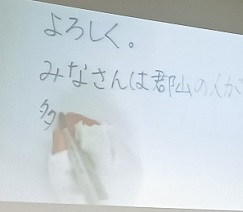 よろしく。
みなさんは郡山の人が
多